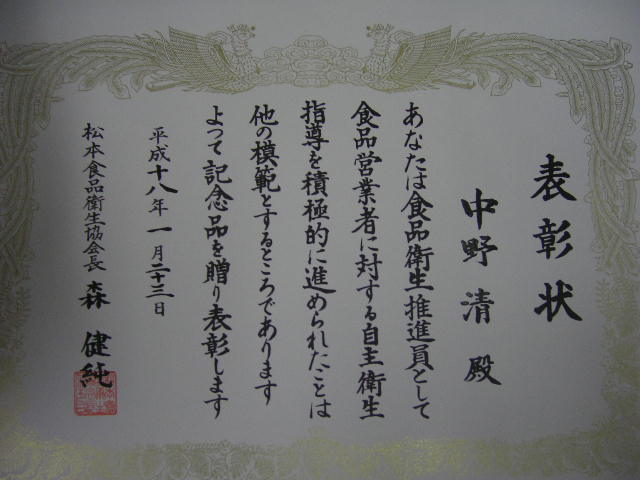 表彰状
中野清 殿
あなたは食品衛生推進員として
食品営業者に対する自主衛生
指導を積極的に進められたことは
他の模範とするところであります
よって記念品を贈り表彰します
平成十八年一月二十三日
松本食品衛生協会長 森 健純